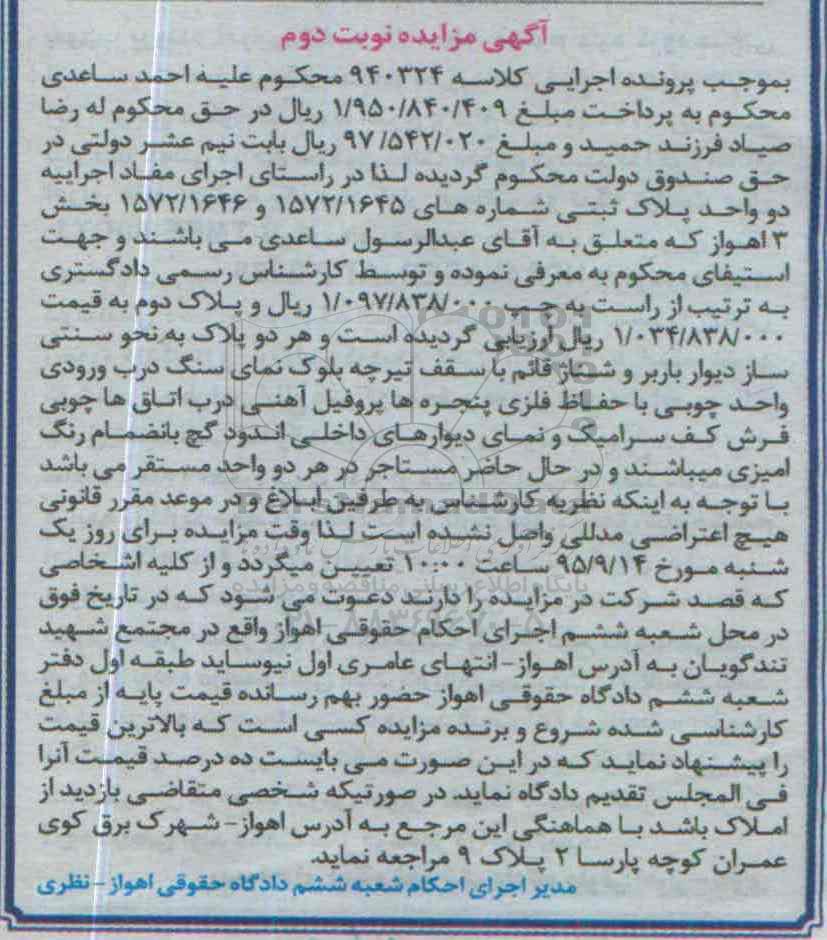 آگهی مزایده نوبت دوم
بموجب پرونده اجرایی کلاسه ۹۴۰۳۲۴ محکوم علیه احمد ساعدی
محکوم به پرداخت مبلغ ۱/۹۵۰/۸۴۰/۴۰۹ ریال در حق محکوم له رضا
صیاد فرزند حمید و مبلغ ۹۷/۵۴۲/۰۲۰ ریال بابت نیم عشر دولتی در
حق صندوق دولت محکوم گردیده لذا در راستای اجرای مفاد اجراییه
دو واحد پلاک ثبتی شماره های ۱۵۷۲/۱۶۴۵ و ۱۵۷۲/۱۶۴۶ بخش
۳ اهواز که متعلق به آقای عبدالرسول ساعدی می باشند و جهت
استیفای محکوم به معرفی نموده و توسط کارشناس رسمی دادگستری
به ترتیب از راست به چپ ۱/۰۹۷/۸۳۸/۰۰۰ ریال و پلاک دوم به قیمت
۱/۰۳۴/۸۳۸/۰۰۰ ریال ارزیابی گردیده است و هر دو پلاک به نحو سنتی
ساز دیوار باربر و شناژ قائم با سقف تیرچه بلوک نمای سنگ درب ورودی
واحد چوبی با حفاظ فلزی پنجره ها پروفیل آهنی درب اتاق ها چوبی
فرش کف سرامیک و نمای دیوارهای داخلی اندود گچ بانضمام رنگ
امیزی میباشند و در حال حاضر مستاجر در هر دو واحد مستقر می باشد
با توجه به اینکه نظریه کارشناس به طرفین ابلاغ و در موعد مقرر قانونی
هیچ اعتراضی مدللی واصل نشده است لذا وقت مزایده برای روز یک
شنبه مورخ ۹۵/۹/۱۴ ساعت ۱۰:۰۰ تعیین میگردد و از کلیه اشخاصی
که قصد شرکت در مزایده را دارند دعوت می شود که در تاریخ فوق
در محل شعبه ششم اجرای احکام حقوقی اهواز واقع در مجتمع شهید
تندگویان به آدرس اهواز- انتهای عامری اول نیوساید طبقه اول دفتر
شعبه ششم دادگاه حقوقی اهواز حضور بهم رسانده قیمت پایه از مبلغ
کارشناسی شده شروع و برنده مزایده کسی است که بالاترین قیمت
را پیشنهاد نماید که در این صورت می بایست ده درصد قیمت آنرا
فی المجلس تقدیم دادگاه نماید. در صورتیکه شخصی متقاضی بازدید از
املاک باشد با هماهنگی این مرجع به آدرس اهواز- شهرک برق کوی
عمران کوچه پارسا ۲ پلاک ۹ مراجعه نماید.
مدیر اجرای احکام شعبه ششم دادگاه حقوقی اهواز - نظری